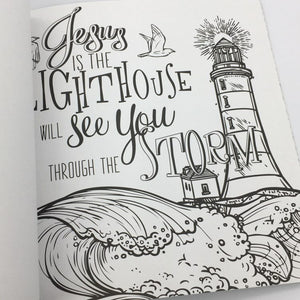 Jesus
IS THE
LIGHTHOUSE
WILL see You
THROUGH THE
STORM